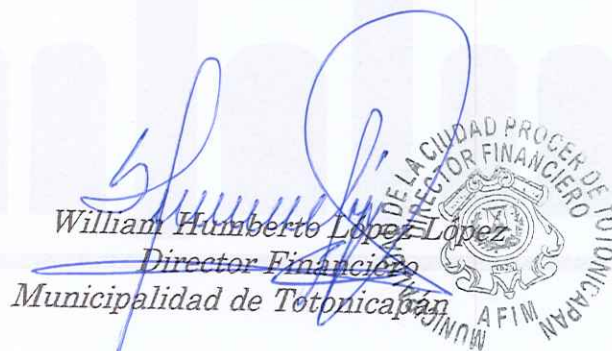 William Humberto López López
Director Financiero
Municipalidad de Totonicapán
MUNICIPALIDAD DE LA CIUDAD PROCER DE TOTONICAPAN
DIRECTOR FINANCIERO
AFIM